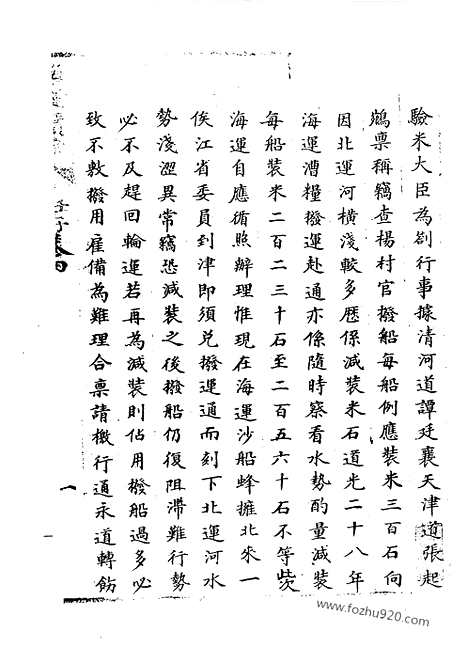 驗米大臣為劄行事據清河道譚廷襄天津道張起
鵷稟稱竊查楊村官撥船每船例應裝米三百石向
因北運河橫淺較多歷係減裝米石道光二十八年
海運漕糧撥運赴通亦係隨時察看水勢酌量減裝
每船裝米二百二三十石至二百五六十石不等茲
海運自應循照辦理惟現在海運沙船蜂擁北來一
俟江省委員到津即須兌撥運通而刻下北運河水
勢淺澀異常竊恐減裝之後撥船仍復阻滯難行勢
必不及趕回輪運若再為減裝則佔用撥船過多必
致不敷撥用雇備為難理合稟請檄行通永道轉飭
一
www.fozhu920.com